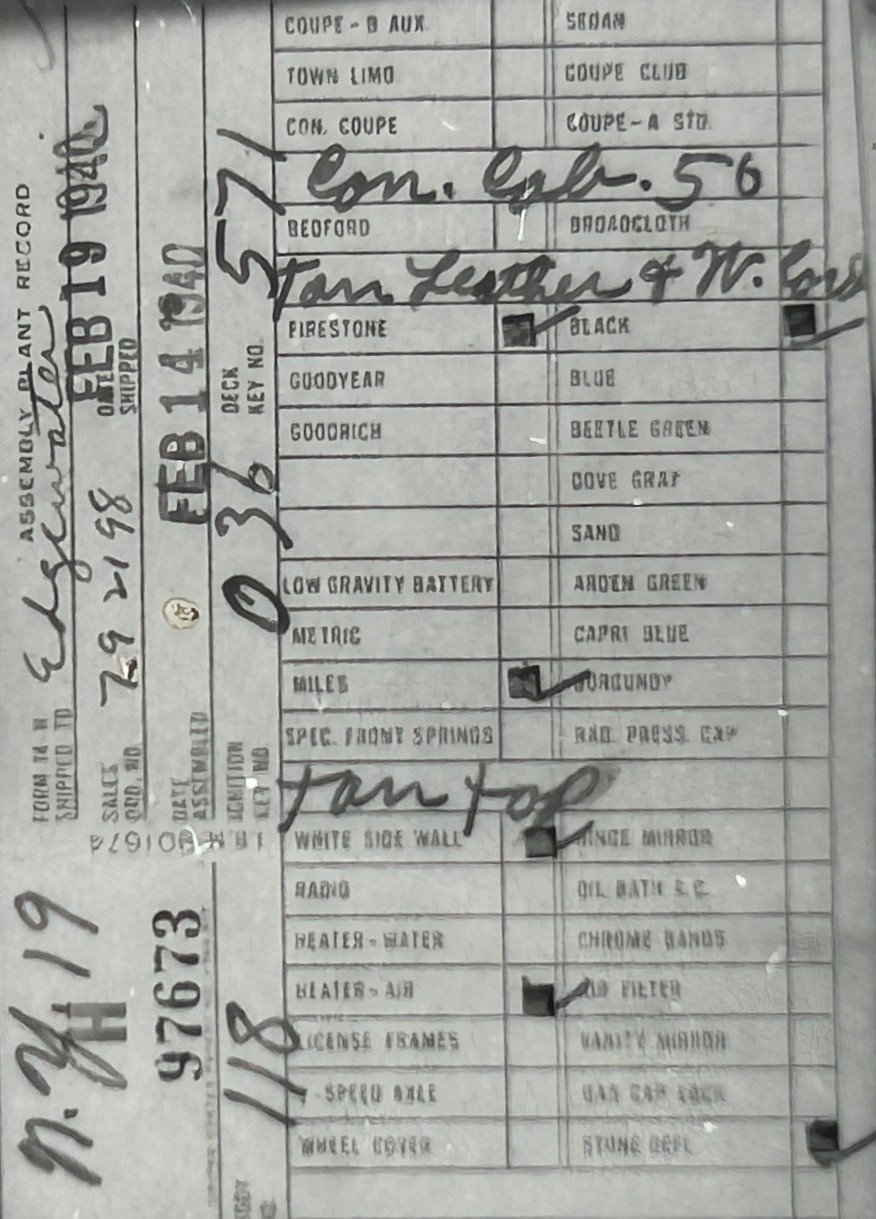 ASSEMBLY PLANT RECORD
FORM 74-H
SHIPPED TO Edgewater
DATE SHIPPED FEB 19 1940
SALES ORD. NO. 792198
DATE ASSEMBLED FEB 14 1940
IGNITION KEY NO. 036
DECK KEY NO. 571
N.Y. 19
H
97673
118
COUPE - B AUX. SEDAN
TOWN LIMO COUPE CLUB
CON. COUPE COUPE - A STD.
Con. Cab. 56
BEDFORD BROADCLOTH
Tan Leather & W. Cord
FIRESTONE BLACK
GOODYEAR BLUE
GOODRICH BEETLE GREEN
DOVE GRAY
SAND
LOW GRAVITY BATTERY ARDEN GREEN
METRIC CAPRI BLUE
MILES BURGUNDY
SPEC. FRONT SPRINGS RAD. PRESS. CAP
Tan top
WHITE SIDE WALL HINGE MIRROR
RADIO OIL BATH A.C.
HEATER - WATER CHROME BANDS
HEATER - AIR FILTER
LICENSE FRAMES VANITY MIRROR
SPEED AXLE GAS CAP LOCK
WHEEL COVER STONE DEFL.